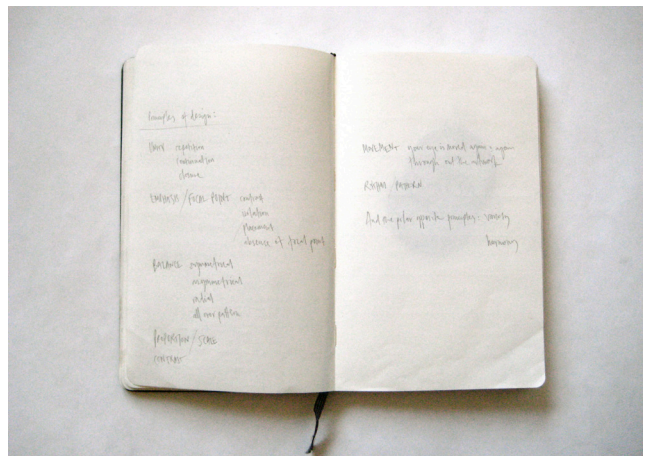 Principles of design:
UNITY repetition
continuation
theme
EMPHASIS / FOCAL POINT contrast
isolation
placement
absence of focal point
BALANCE symmetrical
asymmetrical
radial
all over pattern
PROPORTION / SCALE
CONTRAST
MOVEMENT your eye is moved again & again
through out the network
RHYTHM / PATTERN
And the polar opposite principles: variety
harmony